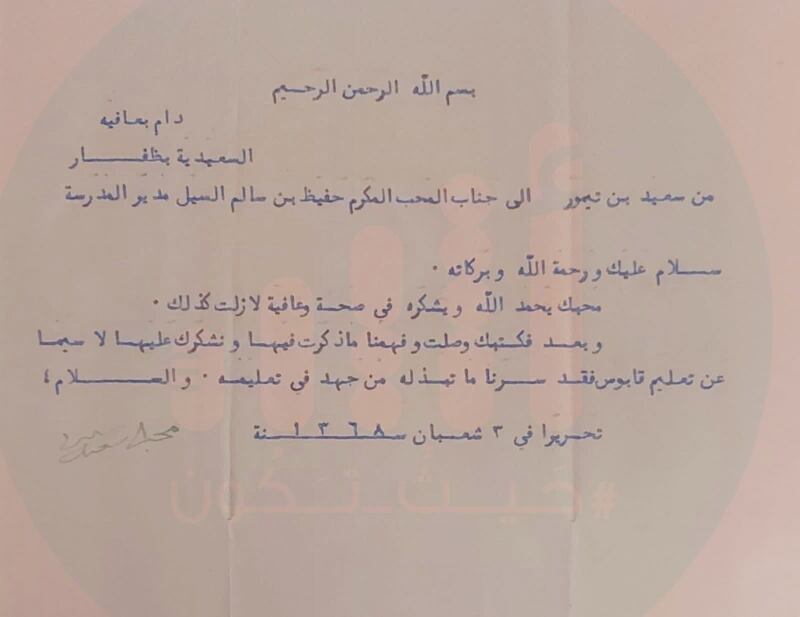 بسم الله الرحمن الرحيم
دام بعافيه
السعيدية بظفـــــار
من سعيد بن تيمور الى جناب المحب المكرم حفيظ بن سالم السيل مدير المدرسة
ســـلام عليك ورحمة الله وبركاته .
محبك يحمد الله ويشكره في صحة وعافية لا زلت كذلك .
وبعـــد فكتبك وصلت وفهمنا ما ذكرت فيها ونشكرك عليها لا سيما
عن تعليم قابوس فقد ســرنا ما تبذله من جهد في تعليمه . والســـــلام ؛
تحريرا في ٣ شعبان ســـ١٣٦٨ــنة
أثير
#حيث_تكون